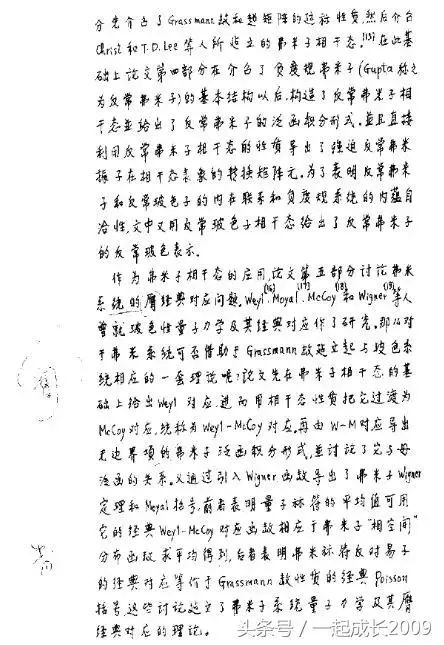 分先介绍了Grassmann数和超矩阵的运算性质然后介绍
Christ和T.D.Lee等人所建立的弗米子相干态.[15]在此基
础上论文第四部分在介绍了负度规弗米子(Gupta称之
为反常弗米子)的基本结构以后,构造了反常弗米子相
干态並给出了反常弗米子的泛函积分形式.並且直接
利用反常弗米子相干态的性质导出了强迫反常弗米
振子在相干态表象的转换矩阵元.为了表明反常弗米
子和反常玻色子的内在联系和负度规系统的内蕴自
洽性,文中又用反常玻色子相干态给出了反常弗米子
的反常玻色表示.
作为弗米子相干态的应用,论文第五部分讨论弗米
系统的赝经典对应问题.Weyl[16].Moyal[17].McCoy[18]和Wigner[19]等人
曾就玻色性量子力学及其经典对应作了研究.那么对
于弗米系统可否借助于Grassmann数建立起与玻色系
统相应的一套理论呢?论文先在弗米子相干态的基
础上给出Weyl对应,进而用相干态性质把它过渡为
McCoy对应,统称为Weyl-McCoy对应.再由W-M对应导出
无边界项的弗米子泛函积分形式,並讨论了它与母
泛函的关系.又通过引入Wigner函数导出了弗米子Wigner
定理和Moyal括号,前者表明量子算符的平均值可用
它的经典Weyl-McCoy对应函数相应于弗米子"相空间"
分布函数求平均得到,后者表明弗米算符反对易子
的经典对应等价于Grassmann数性质的经典Poisson
括号,这些讨论建立了弗米子系统量子力学及其赝
经典对应的理论。
赝
头条号／一起成长2009